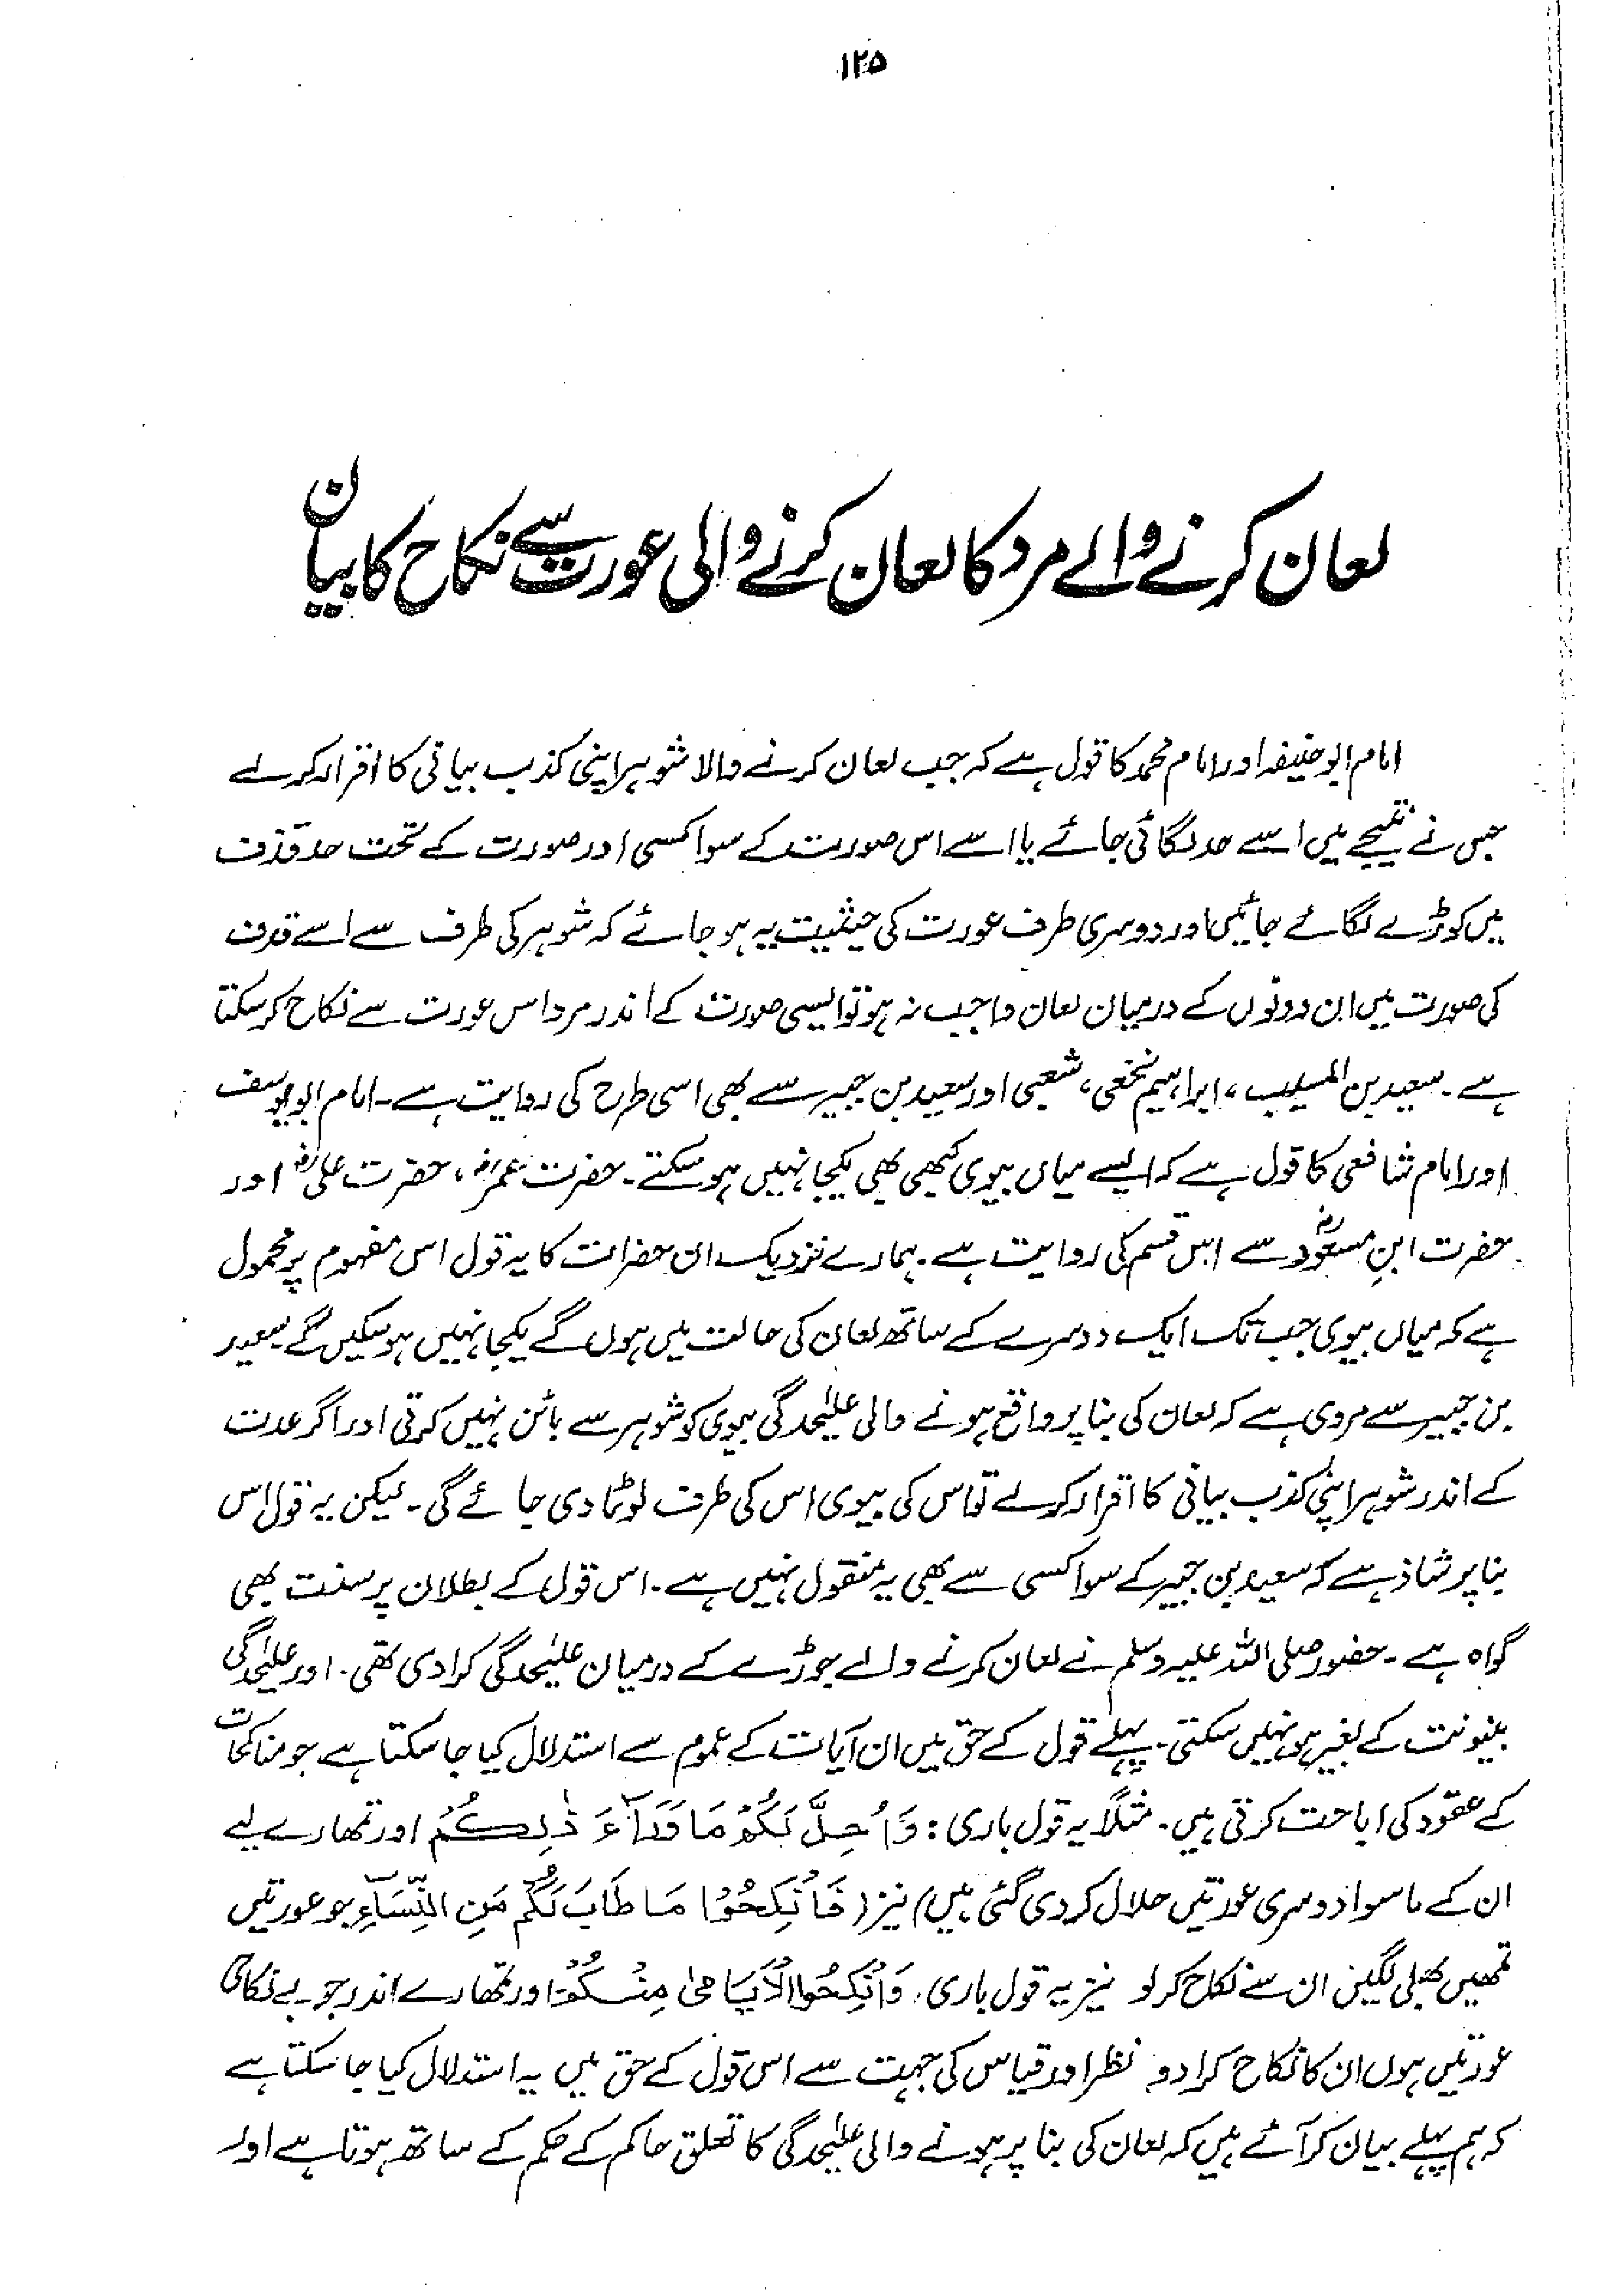 ۱۲۵
لعان کرنے والے مرد کا لعان کرنے والی عورت سے نکاح کا بیان
امام ابوحنیفہ اور امام محمد کا قول ہے کہ جب لعان کرنے والا شوہر اپنی کذب بیانی کا اقرار کر لے
جس نے نتیجے میں اسے حد لگائی جائے یا اسے اس صورت کے سوا کسی اور صورت کے تحت حد قذف
میں کوڑے لگائے جائیں اور دوسری طرف عورت کی حیثیت یہ ہو جائے کہ شوہر کی طرف سے اسے قذف
کی صورت میں ان دونوں کے درمیان لعان واجب نہ ہو تو ایسی صورت کے اندر مرد اس عورت سے نکاح کر سکتا
ہے۔ سعید بن المسیب، ابراہیم نخعی، شعبی اور سعید بن جبیر سے بھی اسی طرح کی روایت ہے۔ امام ابو یوسف
اور امام شافعی کا قول ہے کہ ایسے میاں بیوی کبھی بھی یکجا نہیں ہو سکتے۔ حضرت عمرؓ، حضرت علیؓ اور
حضرت ابنِ مسعودؓ سے اس قسم کی روایت ہے۔ ہمارے نزدیک ان حضرات کا یہ قول اس مفہوم پر محمول
ہے کہ میاں بیوی جب تک ایک دوسرے کے ساتھ لعان کی حالت میں ہوں گے یکجا نہیں ہو سکیں گے۔ سعید
بن جبیر سے مروی ہے کہ لعان کی بنا پر واقع ہونے والی علیٰحدگی بیوی کو شوہر سے بائن نہیں کرتی اور اگر عدت
کے اندر شوہر اپنی کذب بیانی کا اقرار کر لے تو اس کی بیوی اس کی طرف لوٹا دی جائے گی۔ لیکن یہ قول اس
بنا پر شاذ ہے کہ سعید بن جبیر کے سوا کسی سے بھی یہ منقول نہیں ہے۔ اس قول کے بطلان پر سنت بھی
گواہ ہے۔ حضور صلی اللہ علیہ وسلم نے لعان کرنے والے جوڑے کے درمیان علیٰحدگی کرا دی تھی۔ اور علیٰحدگی
بینونت کے بغیر ہو نہیں سکتی۔ پہلے قول کے حق میں ان آیات کے عموم سے استدلال کیا جا سکتا ہے جو مناکحات
کے عقود کی اباحت کرتی ہیں۔ مثلاً یہ قول باری: وَاُحِلَّ لَكُمْ مَا وَرَآءَ ذٰلِكُمْ اور تمہارے لیے
ان کے ماسوا دوسری عورتیں حلال کر دی گئی ہیں) نیز (فَانْكِحُوْا مَا طَابَ لَكُمْ مِّنَ النِّسَآءِ جو عورتیں
تمھیں بھلی لگیں ان سے نکاح کر لو نیز یہ قول باری، وَاَنْكِحُوا الْاَيَامىٰ مِنْكُمْ اور تمھارے اندر جو بے نکاحی
عورتیں ہوں ان کا نکاح کرا دو۔ نظر اور قیاس کی جہت سے اس قول کے حق میں یہ استدلال کیا جا سکتا ہے
کہ ہم پہلے بیان کر آئے ہیں کہ لعان کی بنا پر ہونے والی علیٰحدگی کا تعلق حاکم کے حکم کے ساتھ ہوتا ہے اور